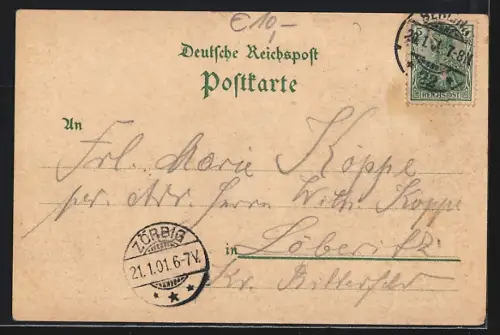 €10,-
BERLIN
20.1.01. 7-8N.
REICHSPOST
Deutsche Reichspost
Postkarte
An
Frl. Marie Köppe
per Adr. Herrn Wilh. Köppe
in Löberitz
Kr. Bitterfeld
ZÖRBIG
21.1.01.6-7V.